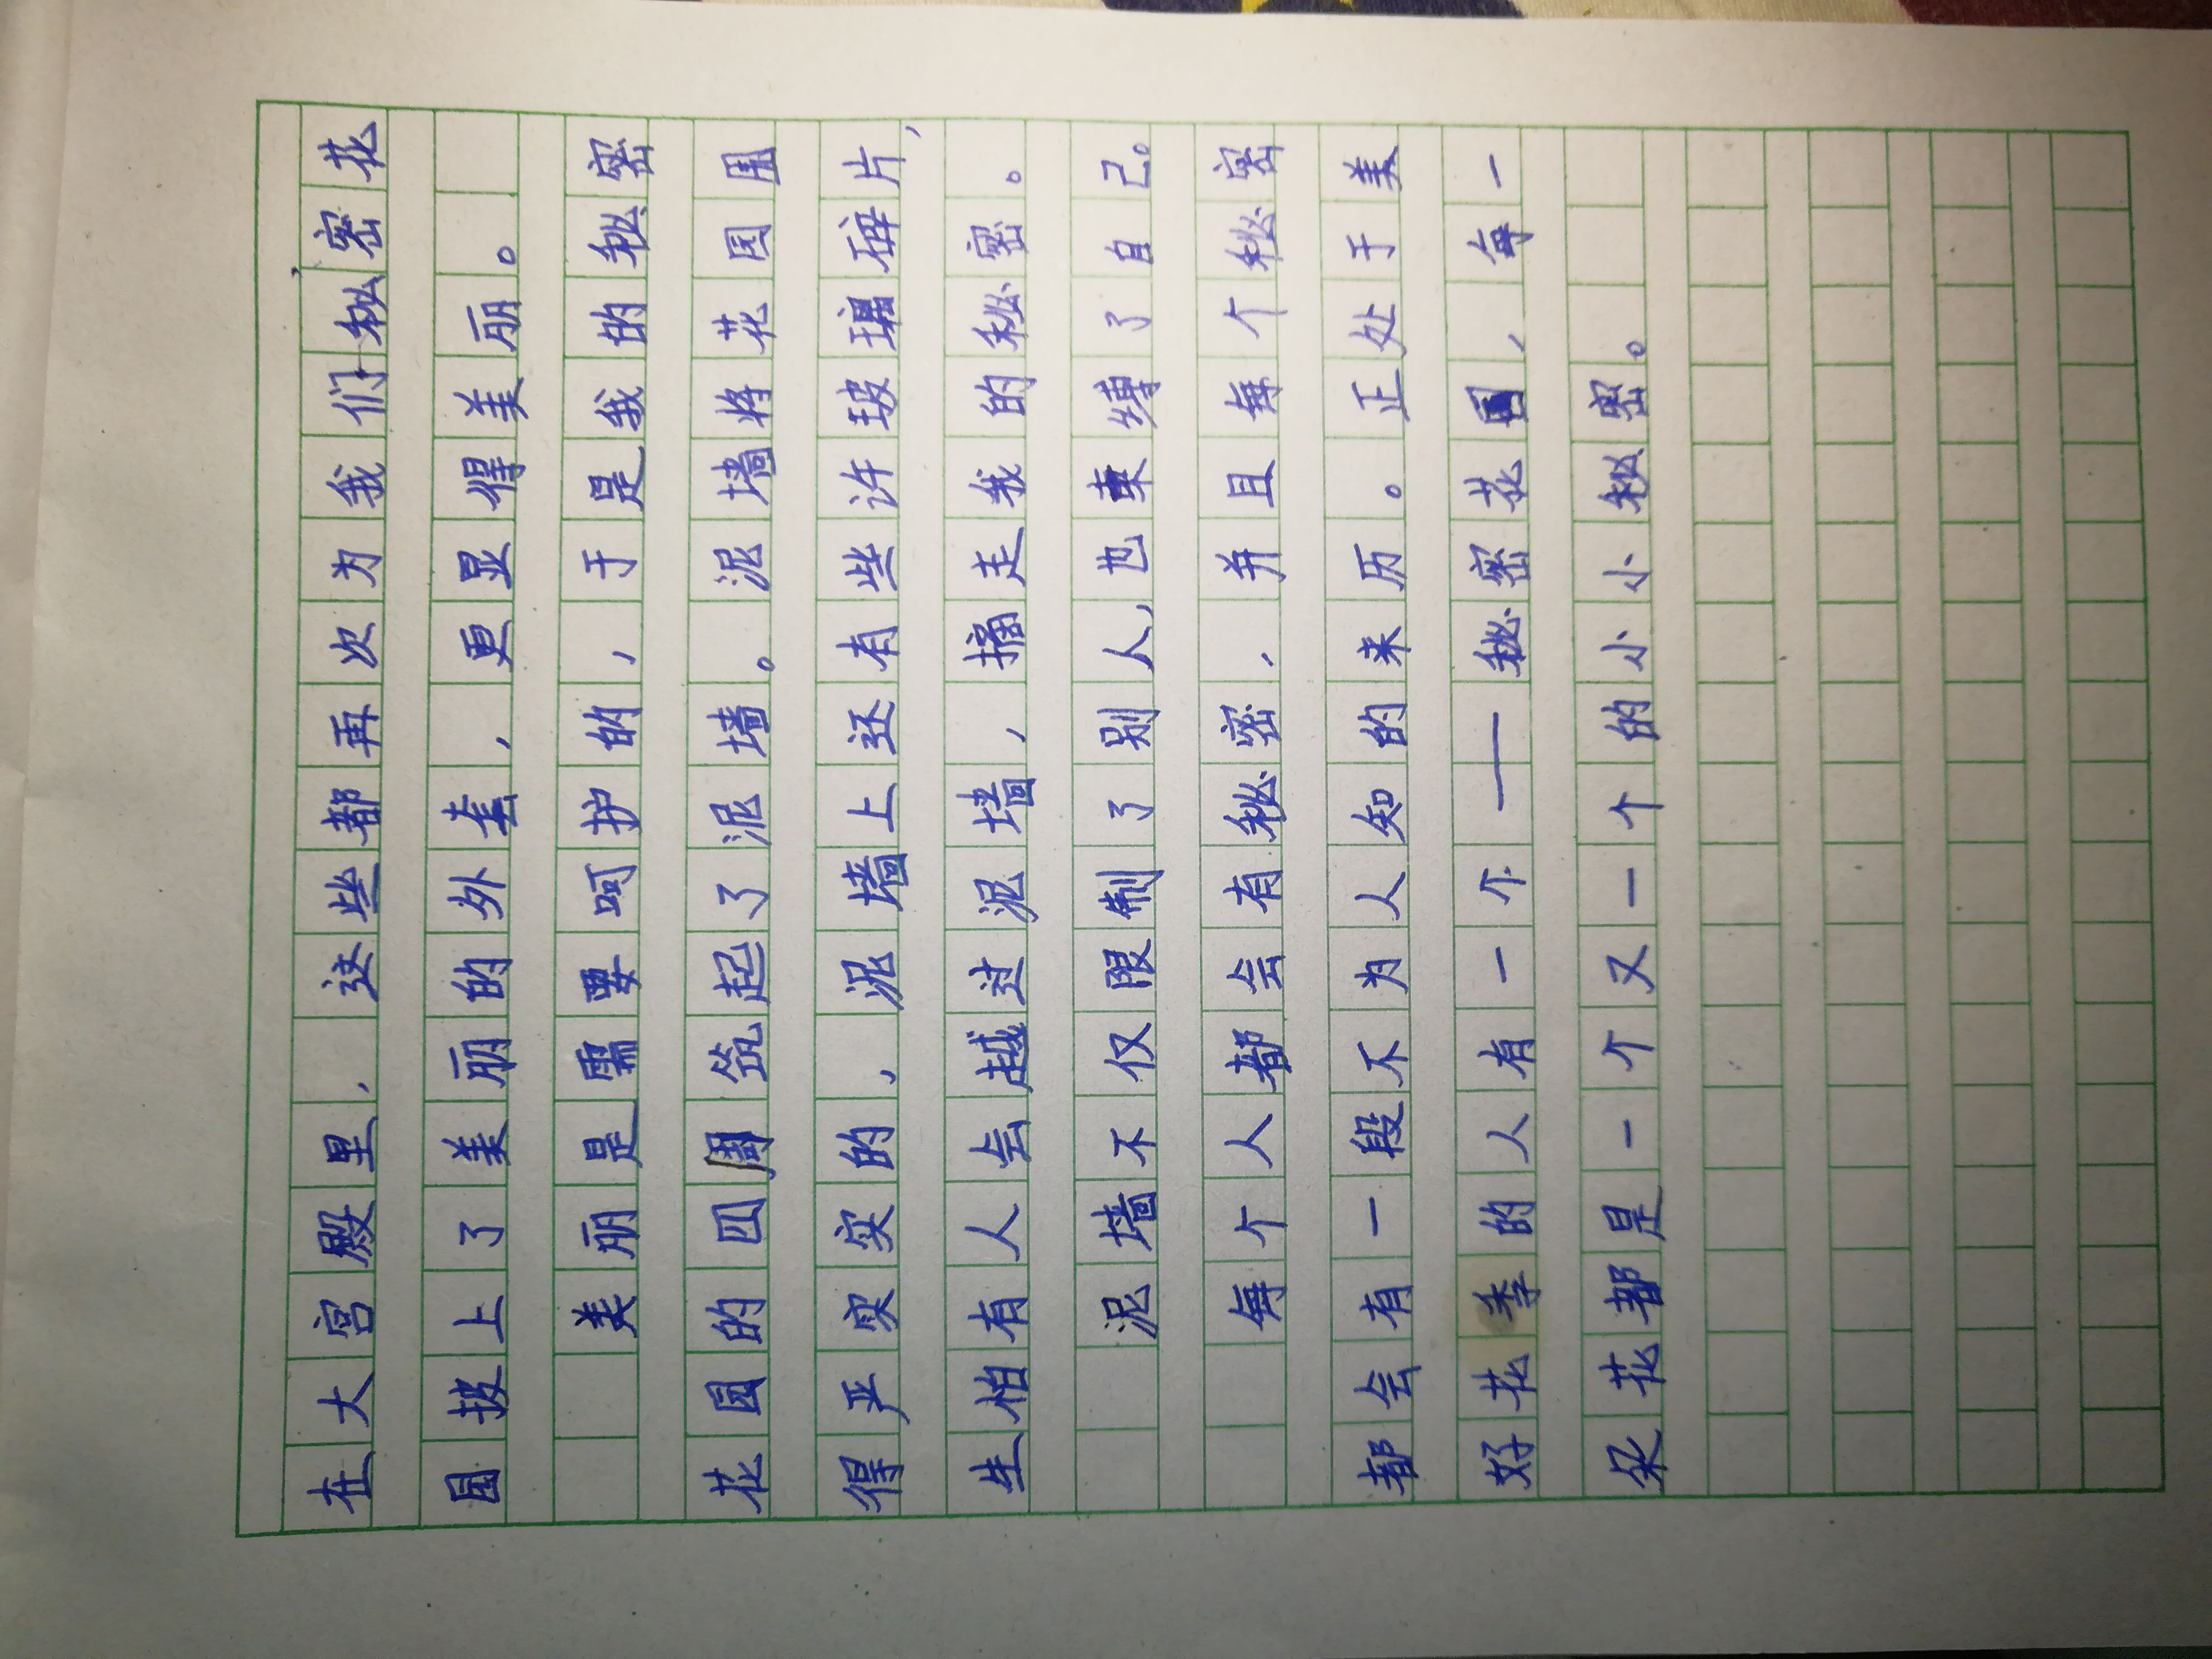 在大宫殿里，这些都再次为我们秘密花
园披上了美丽的外套，更显得美丽。
美丽是需要呵护的，于是我的秘密
花园的四周筑起了泥墙。泥墙将花园围
得严实实的，泥墙上还有些许玻璃碎片，
生怕有人会越过泥墙，摘走我的秘密。
泥墙不仅限制了别人，也束缚了自己。
每个人都会有秘密，并且每个秘密
都会有一段不为人知的来历。正处于美
好花季的人有一个——秘密花园，每一
朵花都是一个又一个的小小秘密。